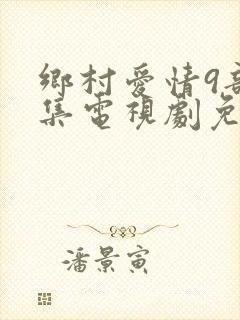 鄉村愛情9部
集電視劇免
潘景寅